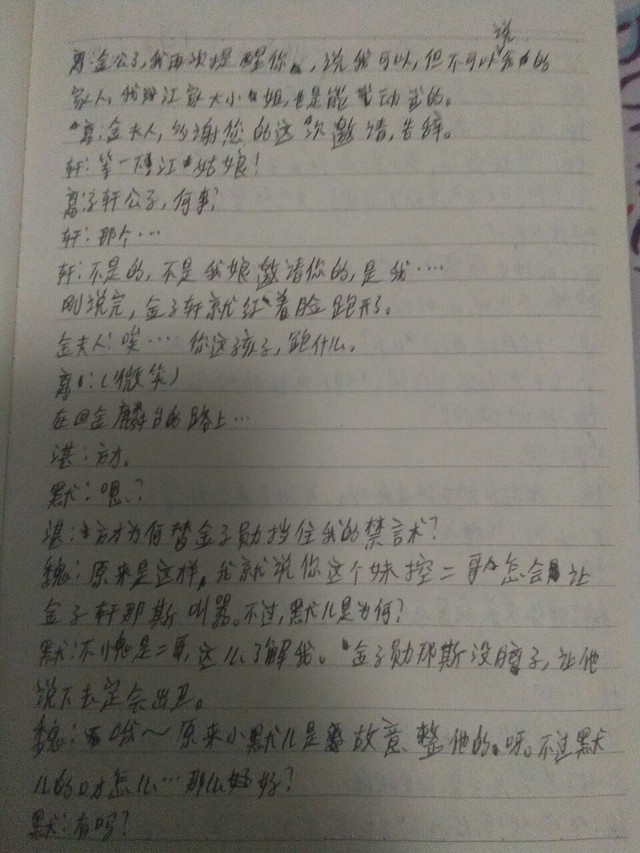 离:金公子,我再次提醒你,说我可以,但不可以说我的
家人,我江家大小姐,也是能动武的。
离:金夫人,多谢您的这次邀请,告辞。
轩:等一下江姑娘!
离:子轩公子,何事?
轩:那个…
轩:不是的,不是我娘邀请你的,是我····
刚说完,金子轩就红着脸跑开了。
金夫人:唉···你这孩子,跑什么。
离:(微笑)
在回金麟台的路上…
湛:方才。
默:嗯?
湛:方才为何替金子勋挡住我的禁言术?
魏:原来是这样,我就说你这个妹控二哥怎会让
金子轩那斯叫嚣。不过,默儿是为何?
默:不愧是二哥,这么了解我。金子勋那斯没脑子,让他
说下去定会出丑。
魏:哦~原来小默儿是故意整他的呀。不过默
儿的口才怎么…那么好?
默:有吗?